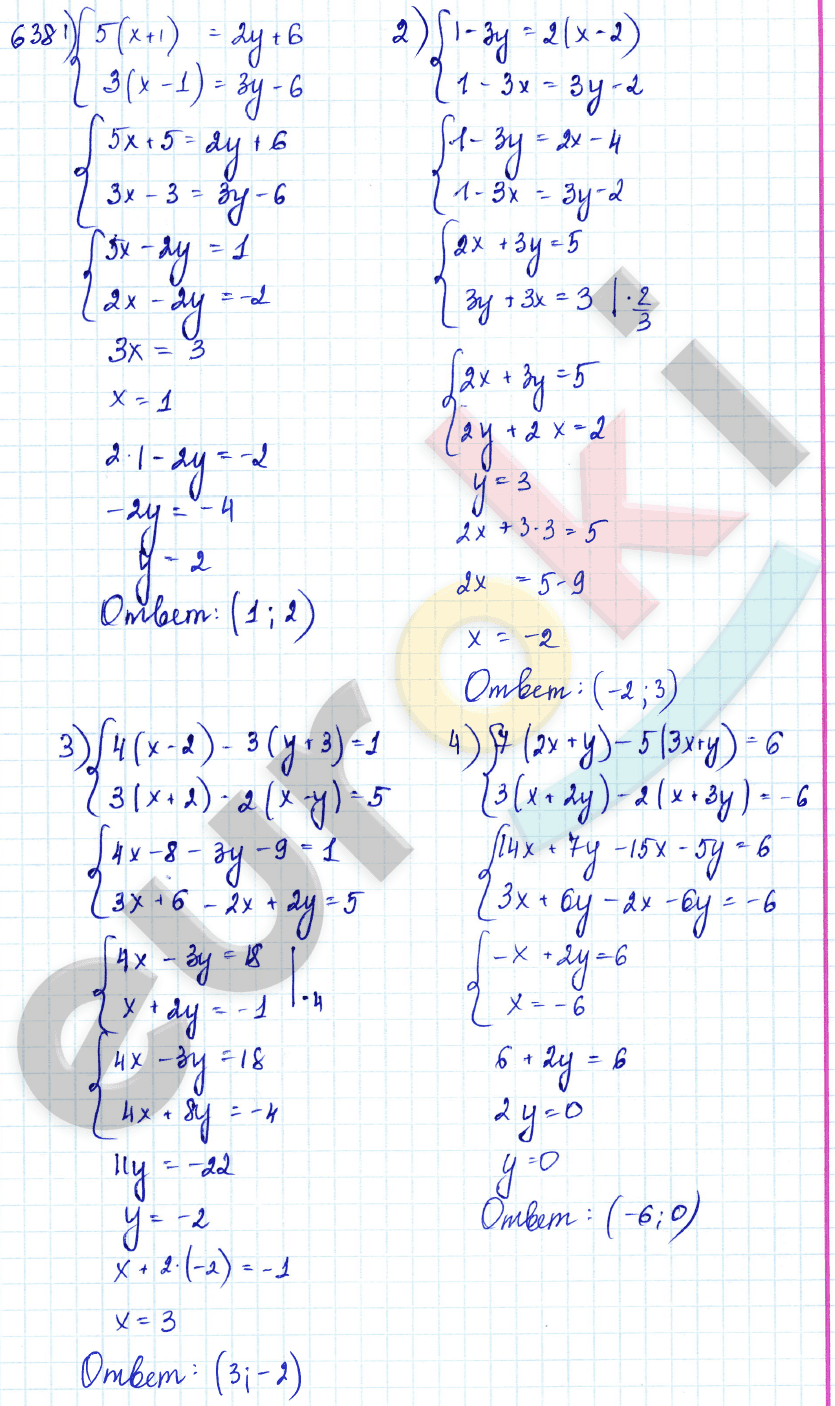 638 1) { 5(x+1) = 2y+6
3(x-1) = 3y-6
{ 5x+5 = 2y+6
3x-3 = 3y-6
{ 5x-2y = 1
2x-2y = -2
3x = 3
x = 1
2·1-2y = -2
-2y = -4
y = 2
Ответ: (1; 2)
2) { 1-3y = 2(x-2)
1-3x = 3y-2
{ 1-3y = 2x-4
1-3x = 3y-2
{ 2x+3y=5
3y+3x=3 |·2/3
{ 2x+3y=5
2y+2x=2
y=3
2x+3·3=5
2x = 5-9
x = -2
Ответ: (-2; 3)
3) { 4(x-2)-3(y+3)=1
3(x+2)-2(x-y)=5
{ 4x-8-3y-9=1
3x+6-2x+2y=5
{ 4x-3y=18
x+2y=-1 |·4
{ 4x-3y=18
4x+8y=-4
11y=-22
y=-2
x+2·(-2)=-1
x=3
Ответ: (3; -2)
4) { 7(2x+y)-5(3x+y)=6
3(x+2y)-2(x+3y)=-6
{ 14x+7y-15x-5y=6
3x+6y-2x-6y=-6
{ -x+2y=6
x=-6
6+2y=6
2y=0
y=0
Ответ: (-6; 0)
euroki